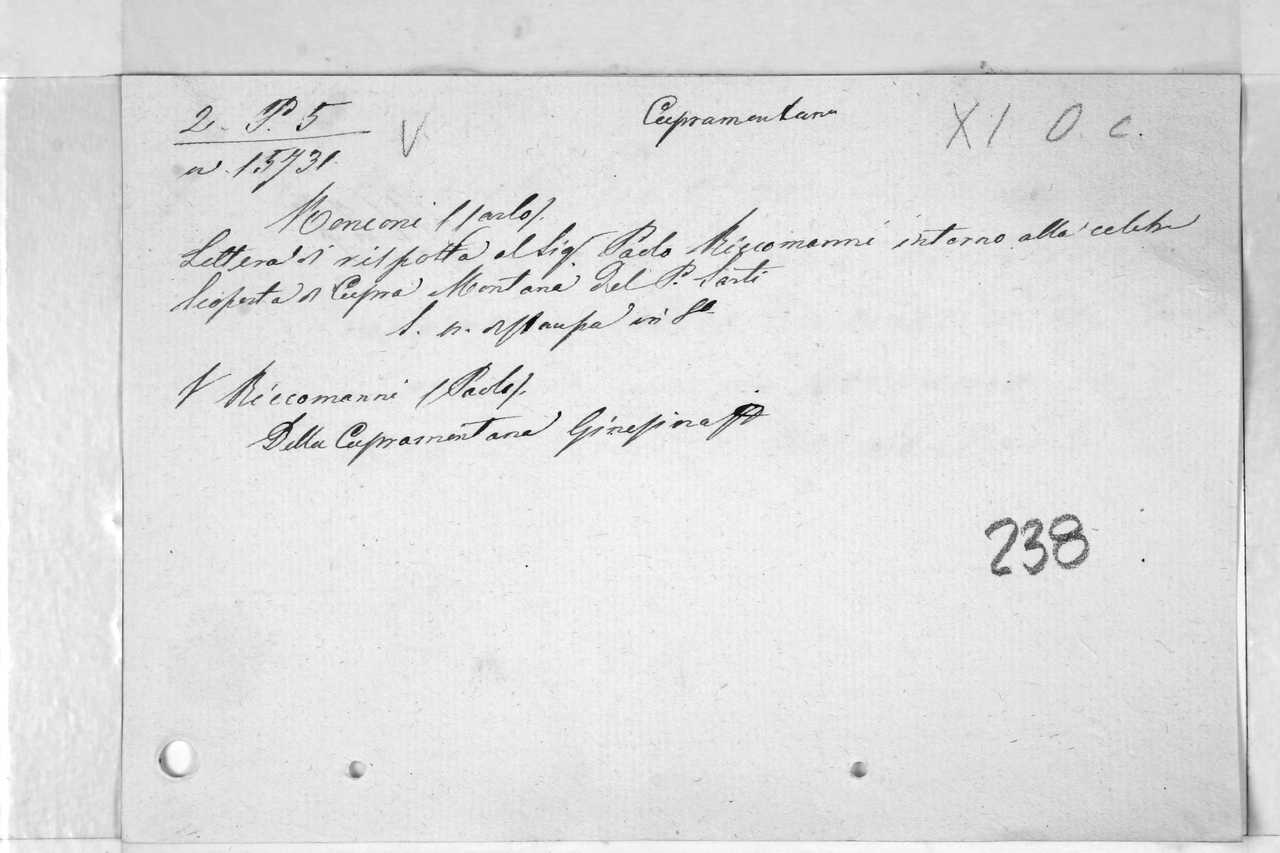 2. P. 5
V
Cupramontana
XI O. c.
n. 15731.
Monconi (Carlo).
Lettera di risposta al Sig.r Paolo Riccomanni intorno alla celebre
Scoperta di Cupra Montana del P. Sarti
S. n. di stampa in 8.o
V Riccomanni (Paolo).
Della Cupramontana Ginesina
238